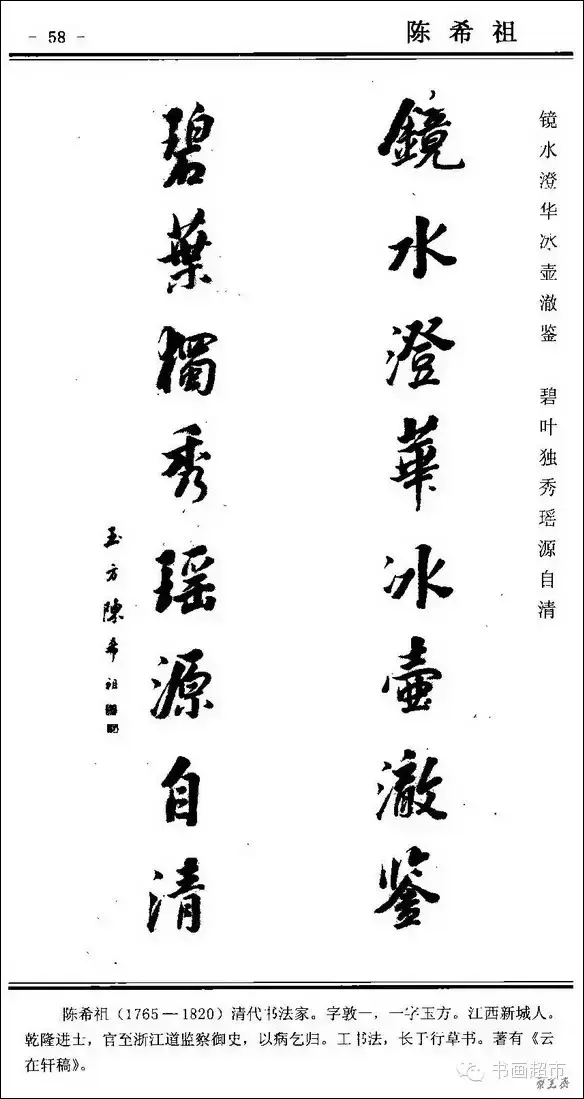 - 58 -
陈希祖
镜水澄华冰壶澈鉴 碧叶独秀瑶源自清
鏡水澄華冰壺澈鑒
碧葉獨秀瑶源自清
玉方陳希祖
陈希祖（1765—1820）清代书法家。字敦一，一字玉方。江西新城人。
乾隆进士，官至浙江道监察御史，以病乞归。工书法，长于行草书。著有《云
在轩稿》。
书画超市